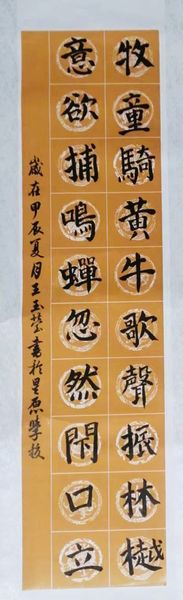 牧童騎黄牛歌聲振林樾
意欲捕鳴蟬忽然閇口立
歲在甲辰夏月王玉書於星原學校